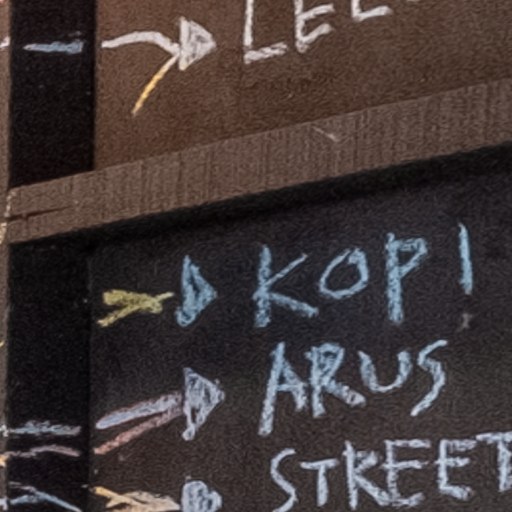 KOPI
ARUS
STREET